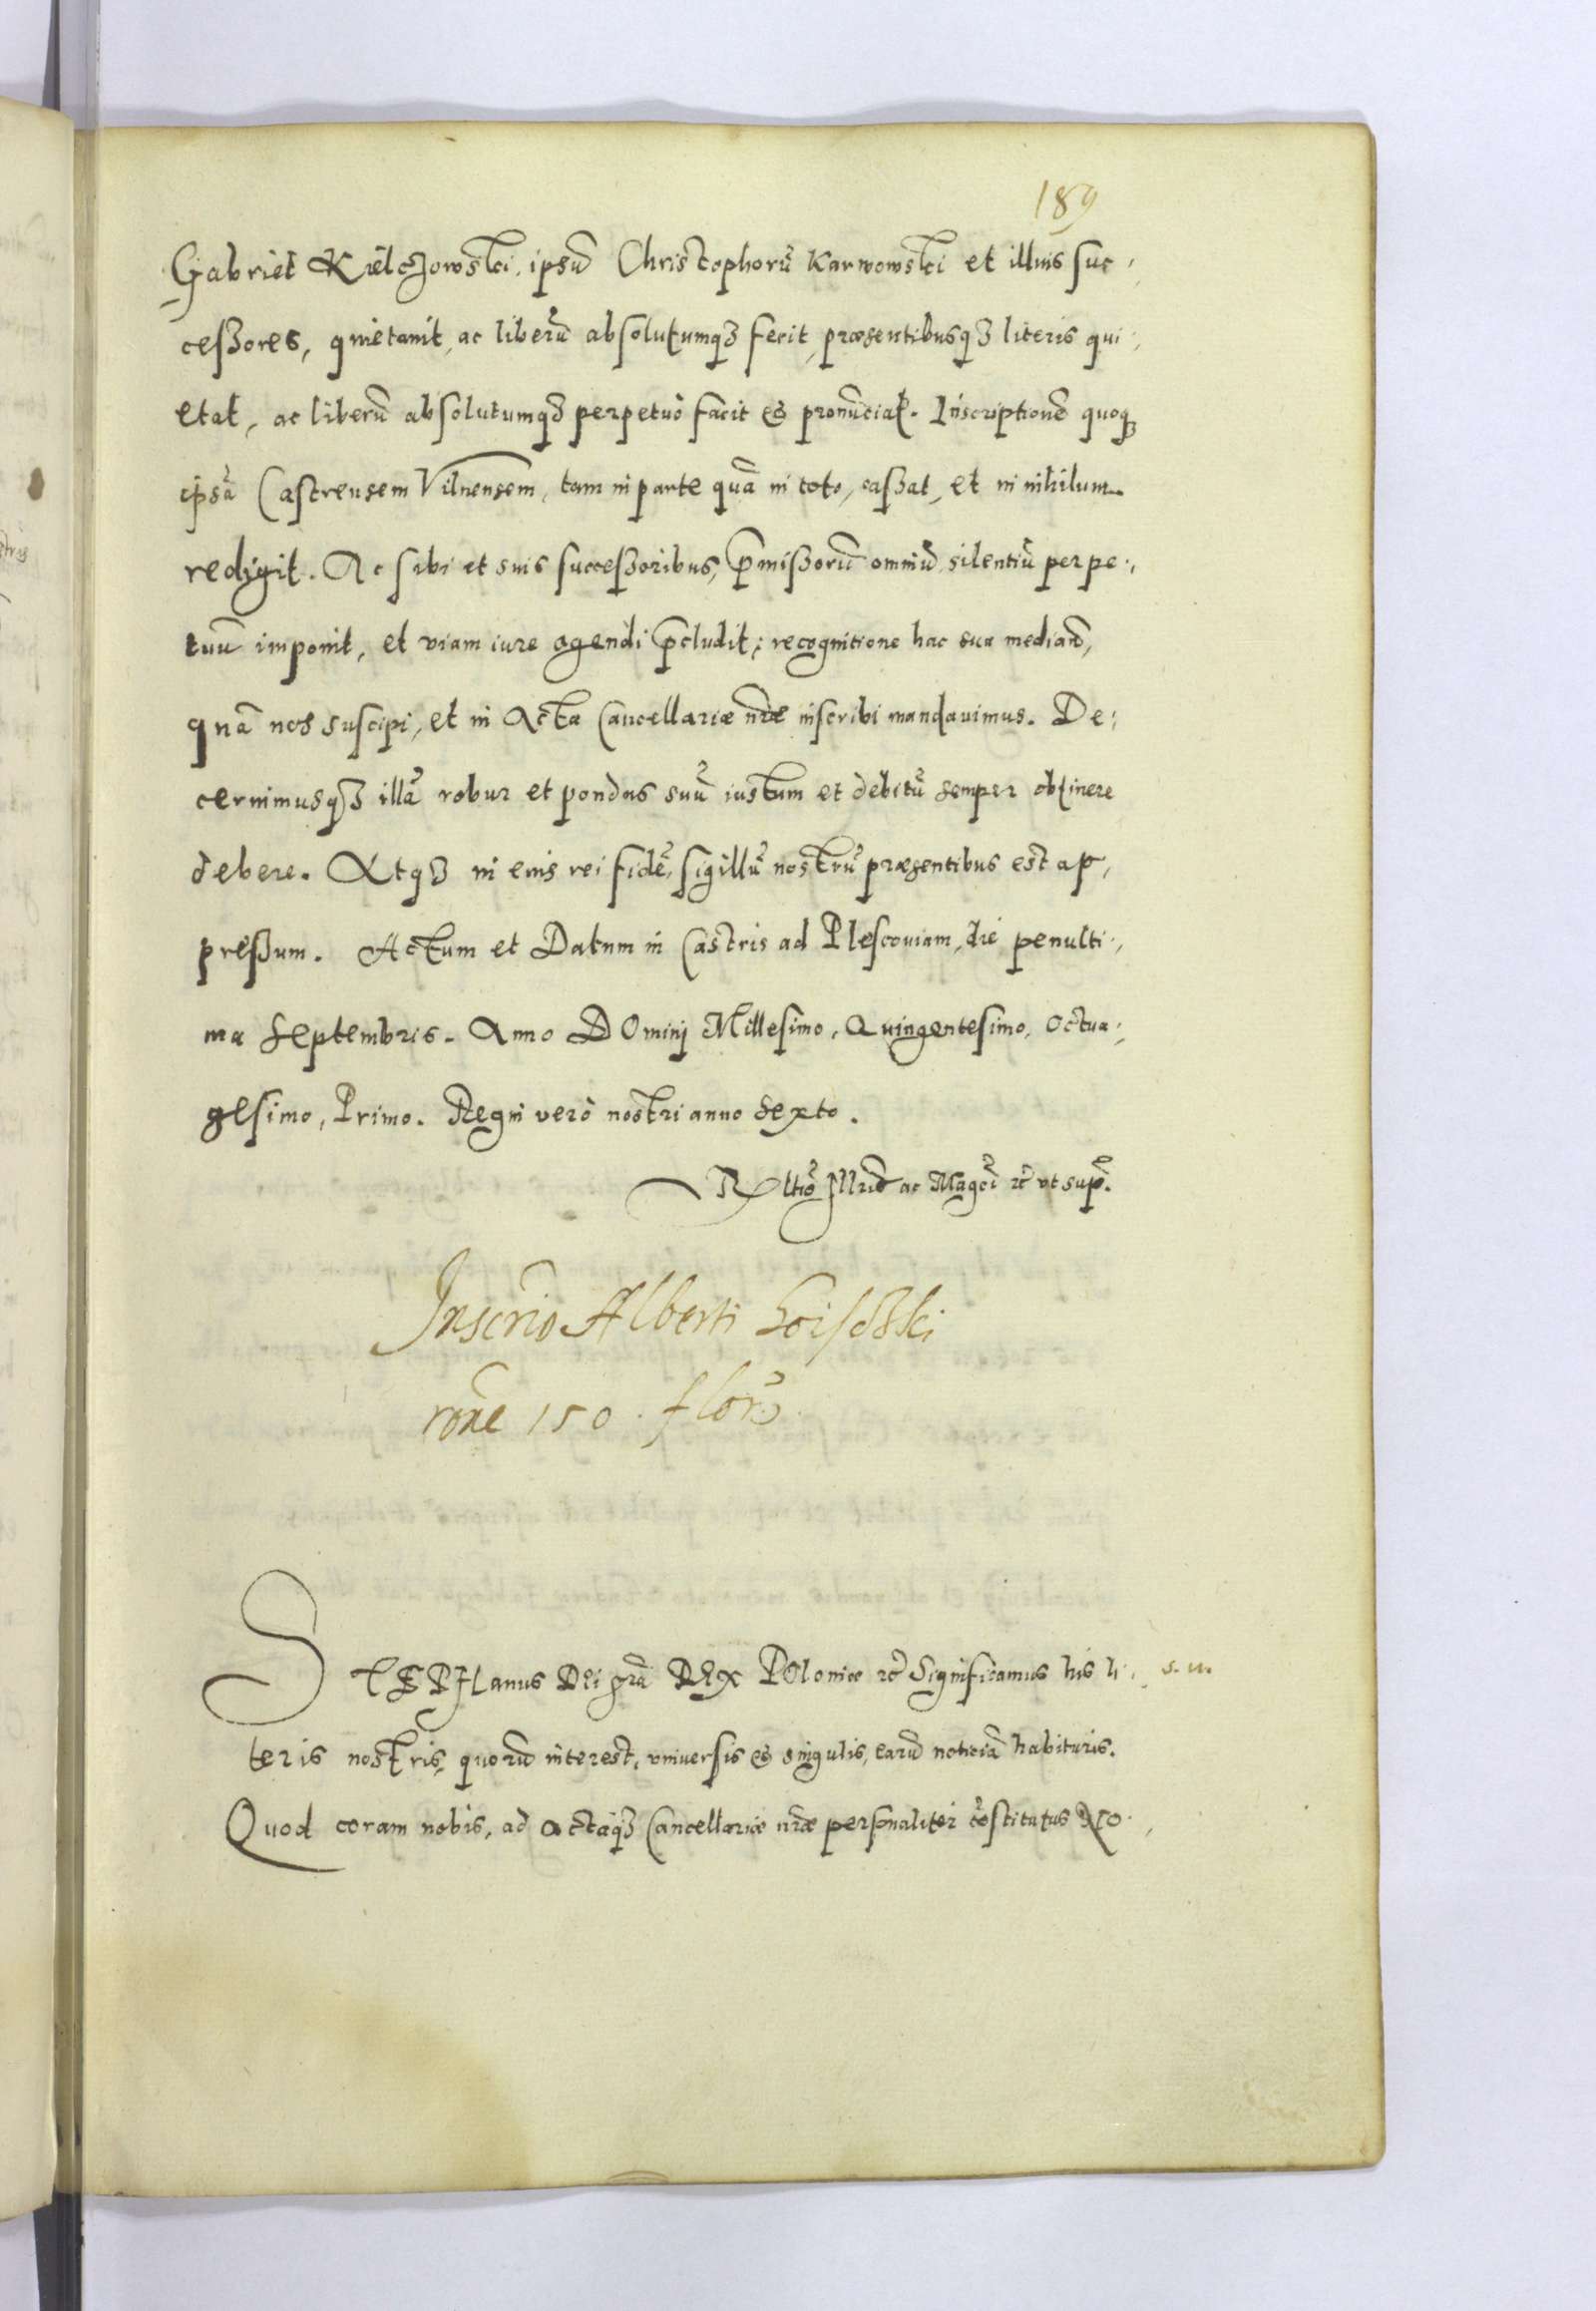 189
Gabriel Kielczowski, ipsũ Christophorũ Karwowski et illius suc,
ceßores, quietauit, ac liberũ absolutumqȝ fecit, præsentibusqȝ literis qui,
etat, ac liberũ absolutumqȝ perpetuò facit et pronũciat. Inscriptionẽ quoqȝ
ipsã Castrensem Vilnensem, tam in parte quã in toto, caßat, et in nihilum
redigit. Ac sibi et suis succeßoribus, p̃mißorũ omniũ silentiũ perpe,
tuũ imponit, et viam iure agendi p̃cludit; recognitione hac sua mediañ,
quã nos suscipi, et in Acta Cancellariæ nr̃æ inscribi mandauimus. De,
cernimusqȝ illã robur et pondus suũ iustum et debitũ semper obtinere
debere. Atqȝ in eius rei fidẽ, sigillũ nostrũ præsentibus est ap,
preßum. Actum et Datum in Castris ad Plescouiam, die penulti,
ma Septembris. Anno DOmini Millesimo, Quingentesimo, Octua,
gesimo, Primo. Regni verò nostri anno Sexto.
Rltio Illris ac Magci rc̃ vt sup̃.
Inscrio Alberti
rõne 150. flor.
STEPHanus DEi gr̃a REX POloniæ rc̃ Significamus his li, s. u.
teris nostris, quorũ interest, vniuersis et singulis, earũ noticiã habituris.
Quod coram nobis, ad actaqȝ Cancellariæ nr̃æ personaliter cõstitutus